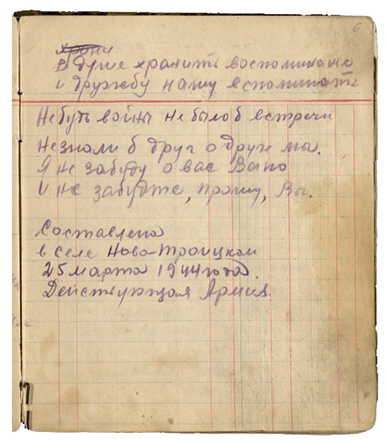 6
хрони
в душе хранить воспоминание
и дружбу нашу вспоминать
Небудь войны не былоб встречи
Незнали б друг о друге мы.
Я не забуду о вас Вано
И не забудте, прошу, Вы.
Составлено
в селе Ново-Троицком
25 марта 1944 года.
Действующая Армия